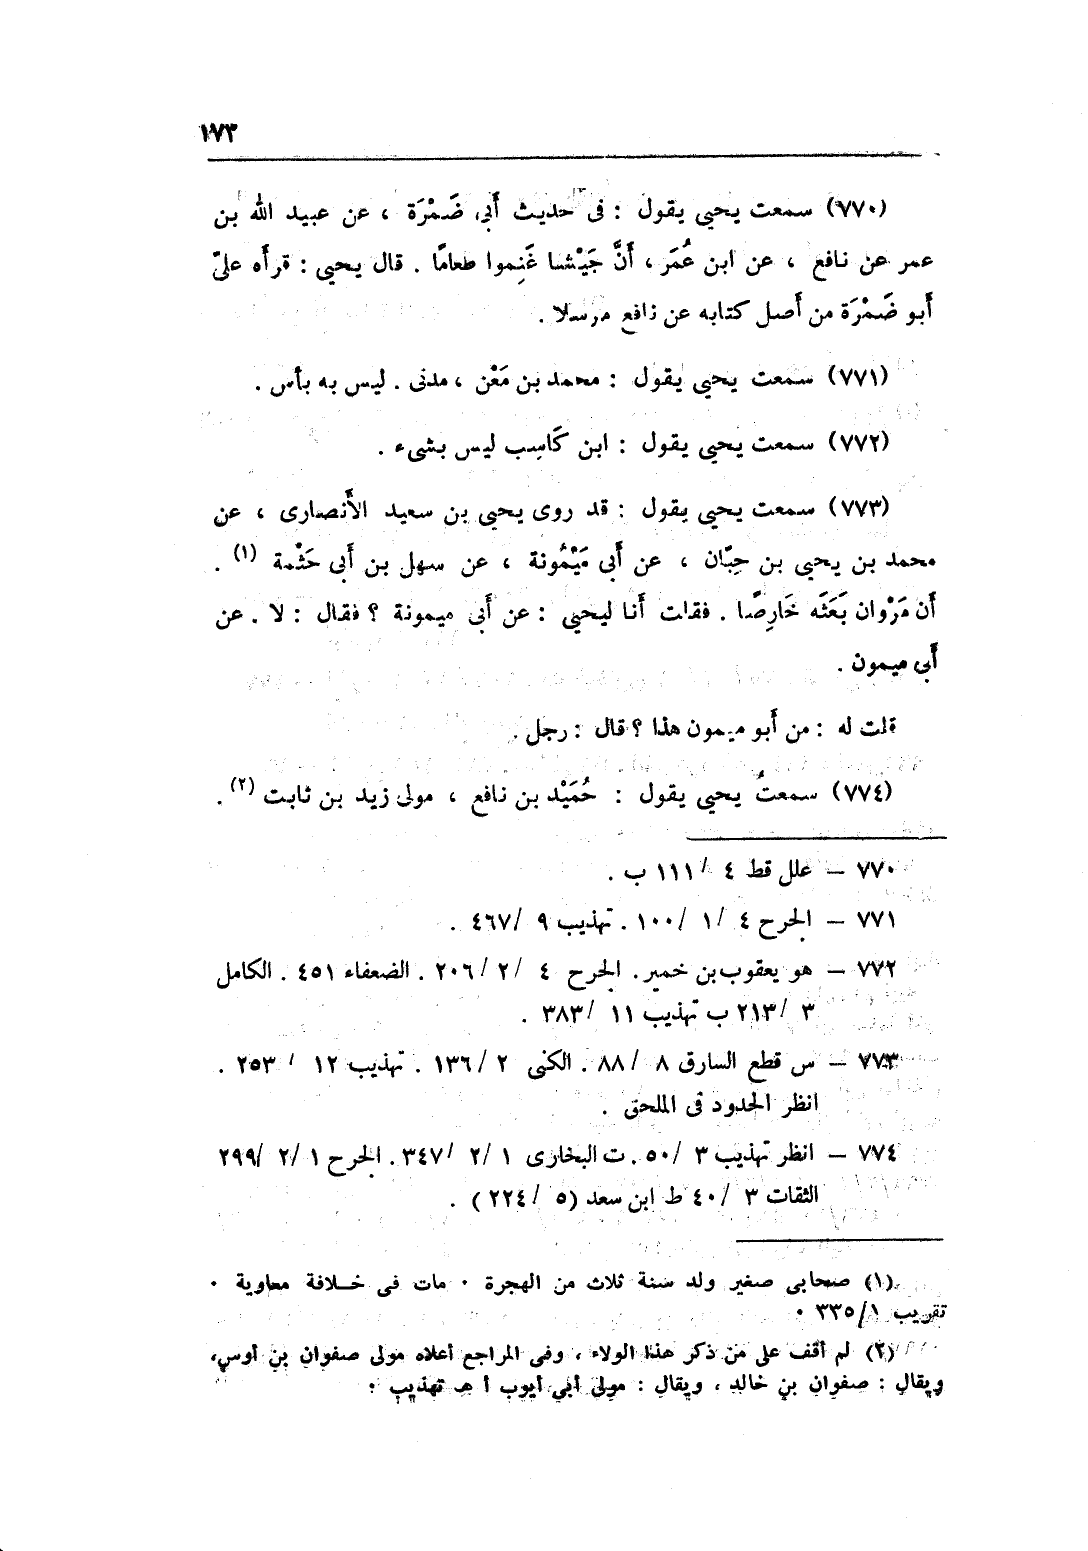 ١٧٣
(٧٧٠) سمعت يحيي يقول : فى حديث أَبى ضَمْرَة ، عن عبيد الله بن
عمر عن نافع ، عن ابن عُمَر ، أَنَّ جَيْشا غَنِموا طعامًا . قال يحيي : قرأَه علىّ
أَبو ضَمْرَة من أَصل كتابه عن نافع مرسلا .
(٧٧١) سمعت يحيي يقول : محمد بن مَعْن ، مدنى . ليس به بأس .
(٧٧٢) سمعت يحيي يقول : ابن كَاسِب ليس بشىء .
(٧٧٣) سمعت يحيي يقول : قد روى يحيي بن سعيد الأَنصارى ، عن
محمد بن يحيي بن حِبّان ، عن أَبى مَيْمُونة ، عن سهل بن أَبى حَثْمة (١) .
أَن مَرْوان بَعَثَه خَارِصًا . فقلت أَنا ليحيي : عن أَبى ميمونة ؟ فقال : لا . عن
أَبى ميمون .
قلت له : من أَبو ميمون هذا ؟ قال : رجل .
(٧٧٤) سمعتُ يحيي يقول : حُمَيْد بن نافع ، مولى زيد بن ثابت (٢) .
٧٧٠ – علل قط ٤ / ١١١ ب .
٧٧١ – الجرح ٤ / ١ / ١٠٠ . تهذيب ٩ / ٤٦٧ .
٧٧٢ – هو يعقوب بن خمير . الجرح ٤ / ٢ / ٢٠٦ . الضعفاء ٤٥١ . الكامل
٣ / ٢١٣ ب تهذيب ١١ / ٣٨٣ .
٧٧٣ – س قطع السارق ٨ / ٨٨ . الكنى ٢ / ١٣٦ . تهذيب ١٢ / ٢٥٣ .
انظر الحدود فى الملحق .
٧٧٤ – انظر تهذيب ٣ / ٥٠ . ت البخارى ١ / ٢ / ٣٤٧ . الجرح ١ / ٢ / ٢٩٩
الثقات ٣ / ٤٠ ط ابن سعد (٥ / ٢٢٤) .
(١) صحابى صغير ولد سنة ثلاث من الهجرة . مات فى خلافة معاوية .
تقريب ١/٣٣٥ .
(٢) لم أقف على من ذكر هذا الولاء ، وفى المراجع أعلاه مولى صفوان بن أوس ،
ويقال : صفوان بن خالد ، ويقال : مولى أبي أيوب أ هـ تهذيب .